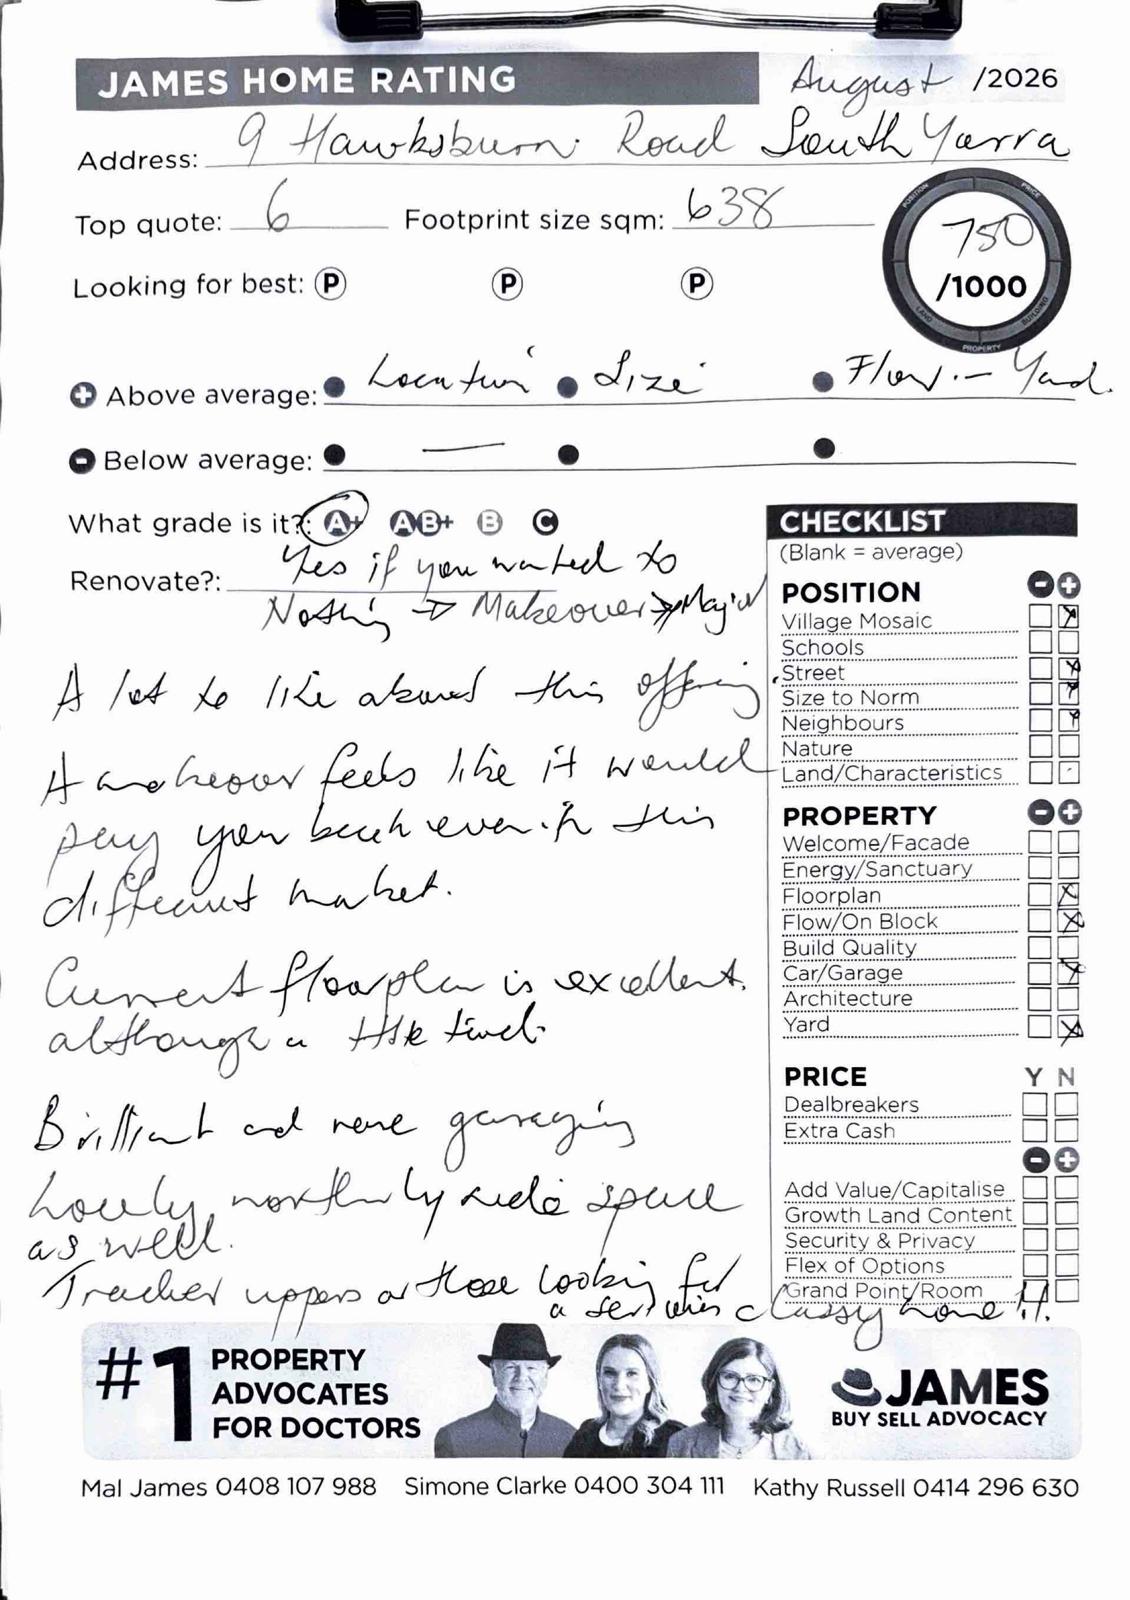 JAMES HOME RATING
August /2026
Address: 9 Hawksburn Road South Yarra
Top quote: 6 Footprint size sqm: 638
750
/1000
POSITION PRICE BUILDING PROPERTY LAND
Looking for best: P P P
+ Above average: • Location • Size • Flow - Yard
- Below average: • — • •
What grade is it?: A+ AB+ B C
Renovate?: Yes if you wanted to
Nothing → Makeover → Major
A lot to like about this offering.
A makeover feels like it would
pay you back even in this
different market.
Current floorplan is excellent,
although a little tired.
Brilliant and rare garaging
Lovely northerly side space
as well.
uppers or those looking for
a classy home !!.
CHECKLIST
(Blank = average)
POSITION - +
Village Mosaic
Schools
Street
Size to Norm
Neighbours
Nature
Land/Characteristics
PROPERTY - +
Welcome/Facade
Energy/Sanctuary
Floorplan
Flow/On Block
Build Quality
Car/Garage
Architecture
Yard
PRICE Y N
Dealbreakers
Extra Cash
- +
Add Value/Capitalise
Growth Land Content
Security & Privacy
Flex of Options
Grand Point/Room
#1 PROPERTY
ADVOCATES
FOR DOCTORS
JAMES
BUY SELL ADVOCACY
Mal James 0408 107 988 Simone Clarke 0400 304 111 Kathy Russell 0414 296 630